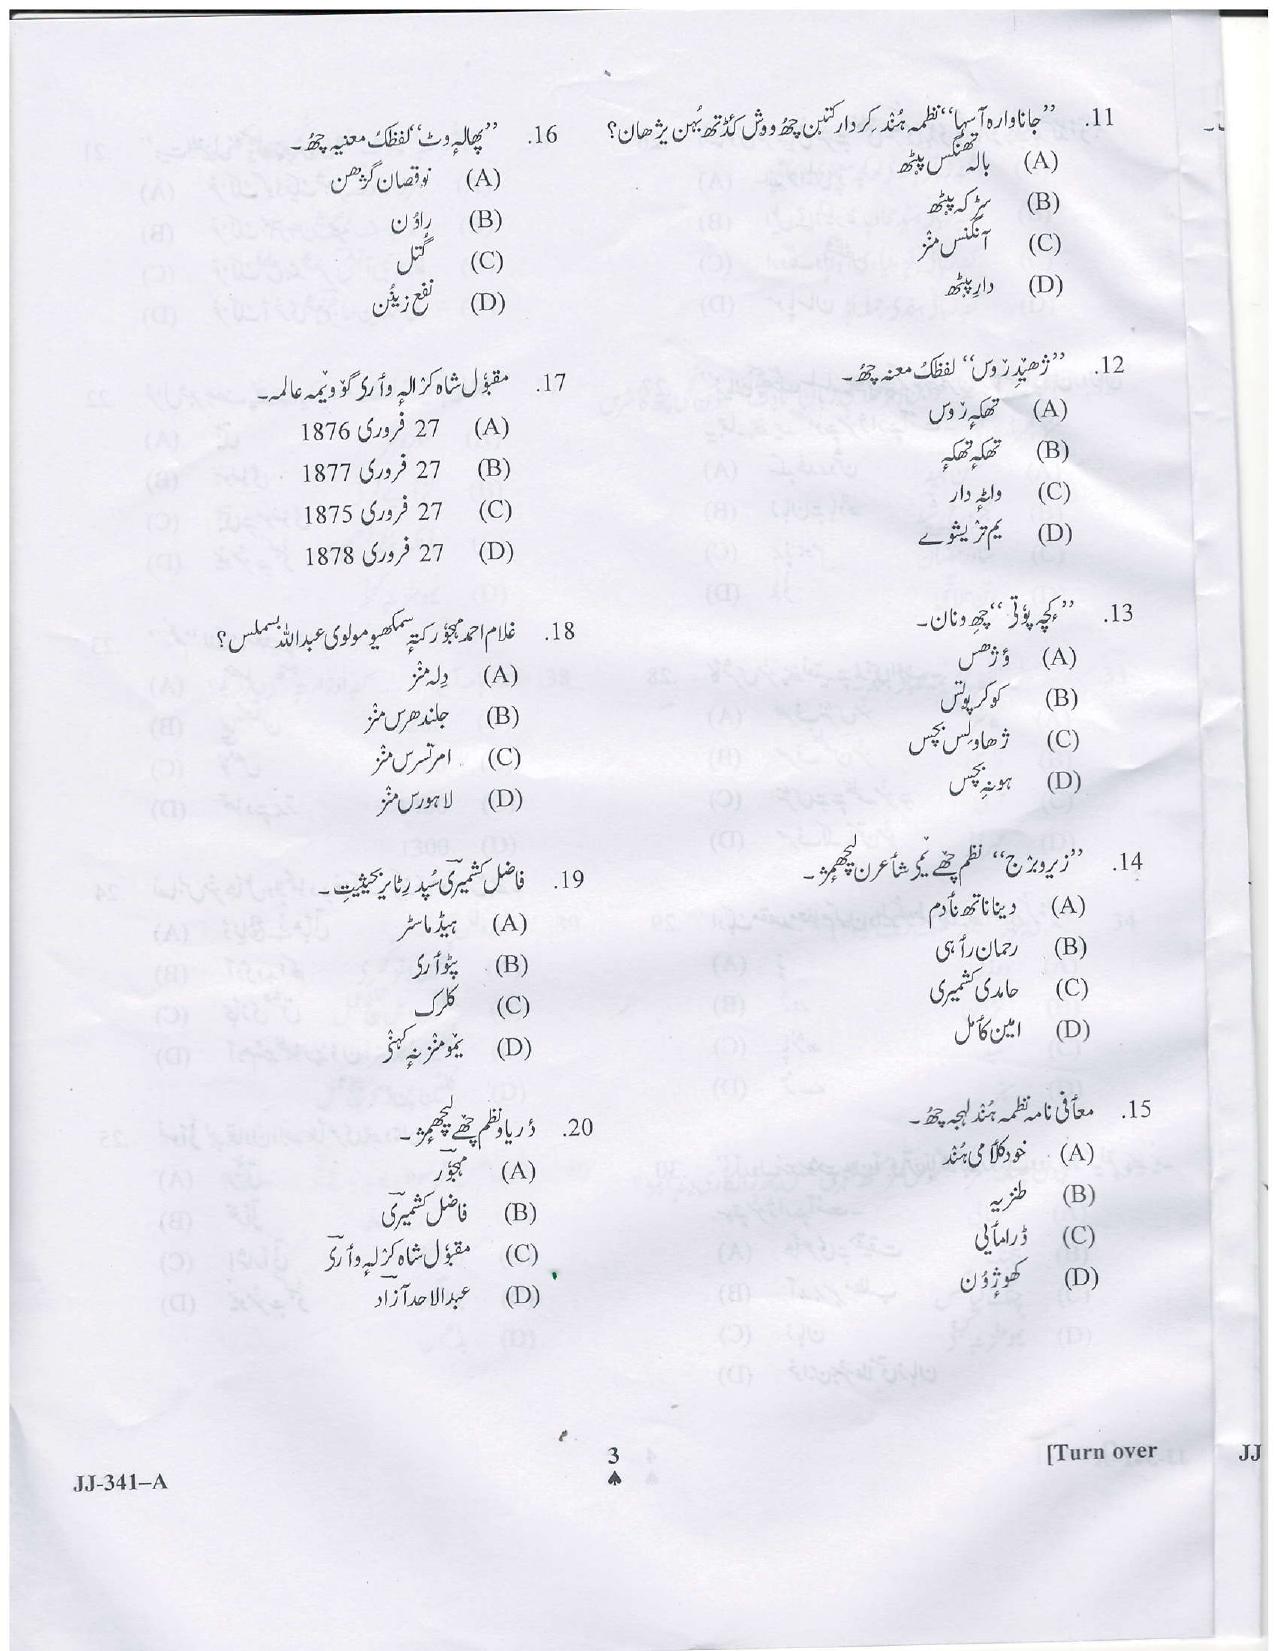 11. ”جاناوارہ آسہا“ نظمہ ہُنٛد کردار کتٮ۪ن چھُ ووش کٔڈتھ بُہن یژھان؟
(A) بالہ تھنٛگس پٮ۪ٹھ
(B) سڑکہ پٮ۪ٹھ
(C) آنگنس منٛز
(D) دارِ پٮ۪ٹھ
12. ”ژھٮ۪ڈِ رٕوس“ لفظُک معنہ چھُ۔
(A) تھکہٕ رٕوس
(B) تھکہٕ تھکہٕ
(C) واٹہٕ دار
(D) یم ترٛیشوے
13. ”کٔچہ پوٗتی“ چھِ ونان۔
(A) وٕژھس
(B) کوکر پوٗتس
(C) ژھاولِس بچس
(D) ہونہِ بچس
14. ”زیر وبرٛج“ نظم چھےٚ یٔمۍ شأعرن لیچھمٕژ۔
(A) دیناناتھ نأدم
(B) رحمان رأہی
(C) حامدی کشمیری
(D) امین کأمل
15. معأفی نامہ نظمہ ہُنٛد لہجہ چھُ۔
(A) خودکلامی ہُنٛد
(B) طنزیہ
(C) ڈرامأیی
(D) کھوژوٕن
16. ”پھالہٕ وٹ“ لفظُک معنیہ چھُ۔
(A) نوقصان گژھن
(B) راوُن
(C) گُتل
(D) نفع زینُن
17. مقبوٗل شاہ کرٛالہٕ وأری گوٚو یٔمہ عالمہ۔
(A) 27 فروری 1876
(B) 27 فروری 1877
(C) 27 فروری 1875
(D) 27 فروری 1878
18. غلام احمد مہجوٗر کتہٕ سمکھیو مولوی عبداللہ بسملس؟
(A) دِلہ منٛز
(B) جلندھرس منٛز
(C) امرتسرس منٛز
(D) لاہورس منٛز
19. فاضل کشمیری سُپد رِٹایر بحیثیتِ۔
(A) ہیڈ ماسٹر
(B) پٹوأری
(C) کلرک
(D) یِمو منٛزہ نہٕ کہنٛی
20. دٔریاو نظم چھےٚ لیچھمٕژ۔
(A) مہجوٗر
(B) فاضل کشمیری
(C) مقبوٗل شاہ کرٛلہٕ وأری
(D) عبدالاحد آزاد
3
JJ-341–A
[Turn over
JJ